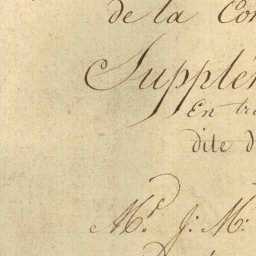 de la Co
Supplé
En tr
dite d
Mr. J: M: